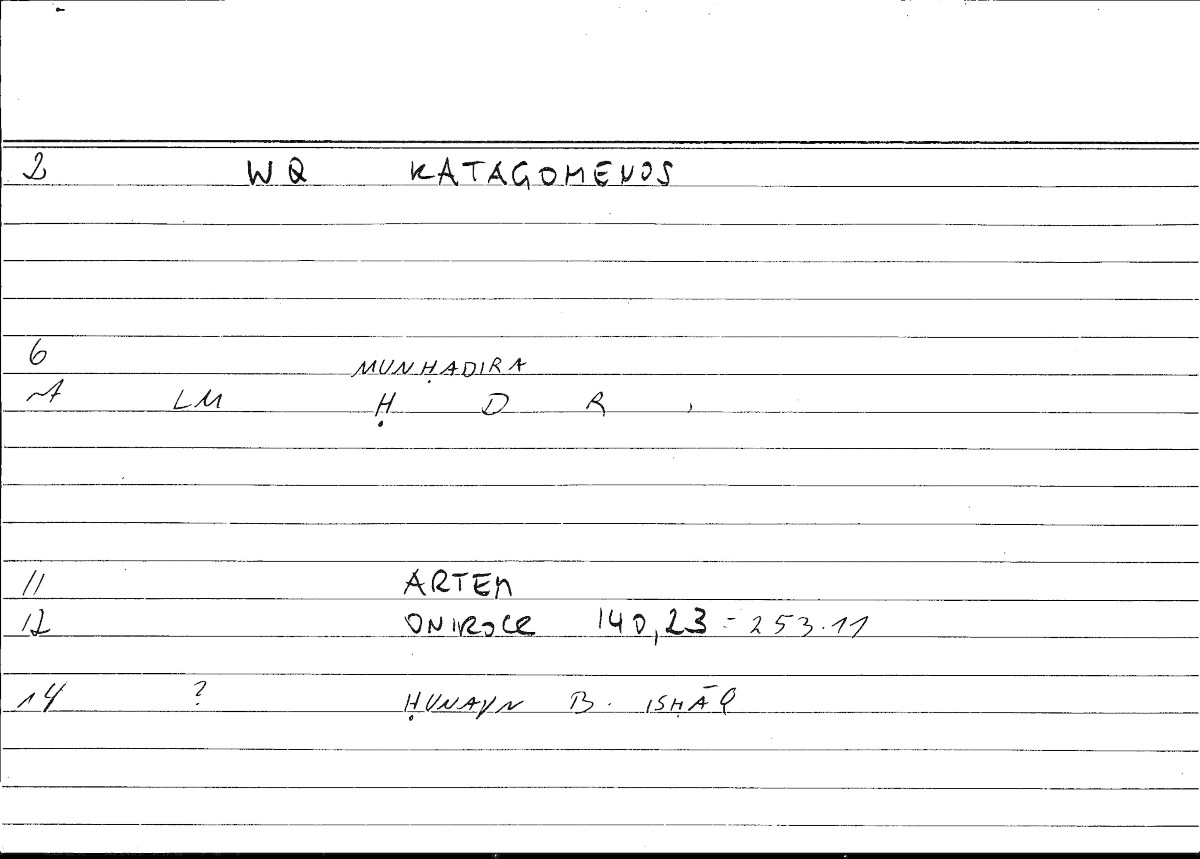 2 WQ KATAGOMENOS
6 MUNḤADIRA
7 LM Ḥ D R ,
11 ARTEM
12 ONIROCR 140,23 = 253.11
14 ? ḤUNAYN B. ISḤĀQ